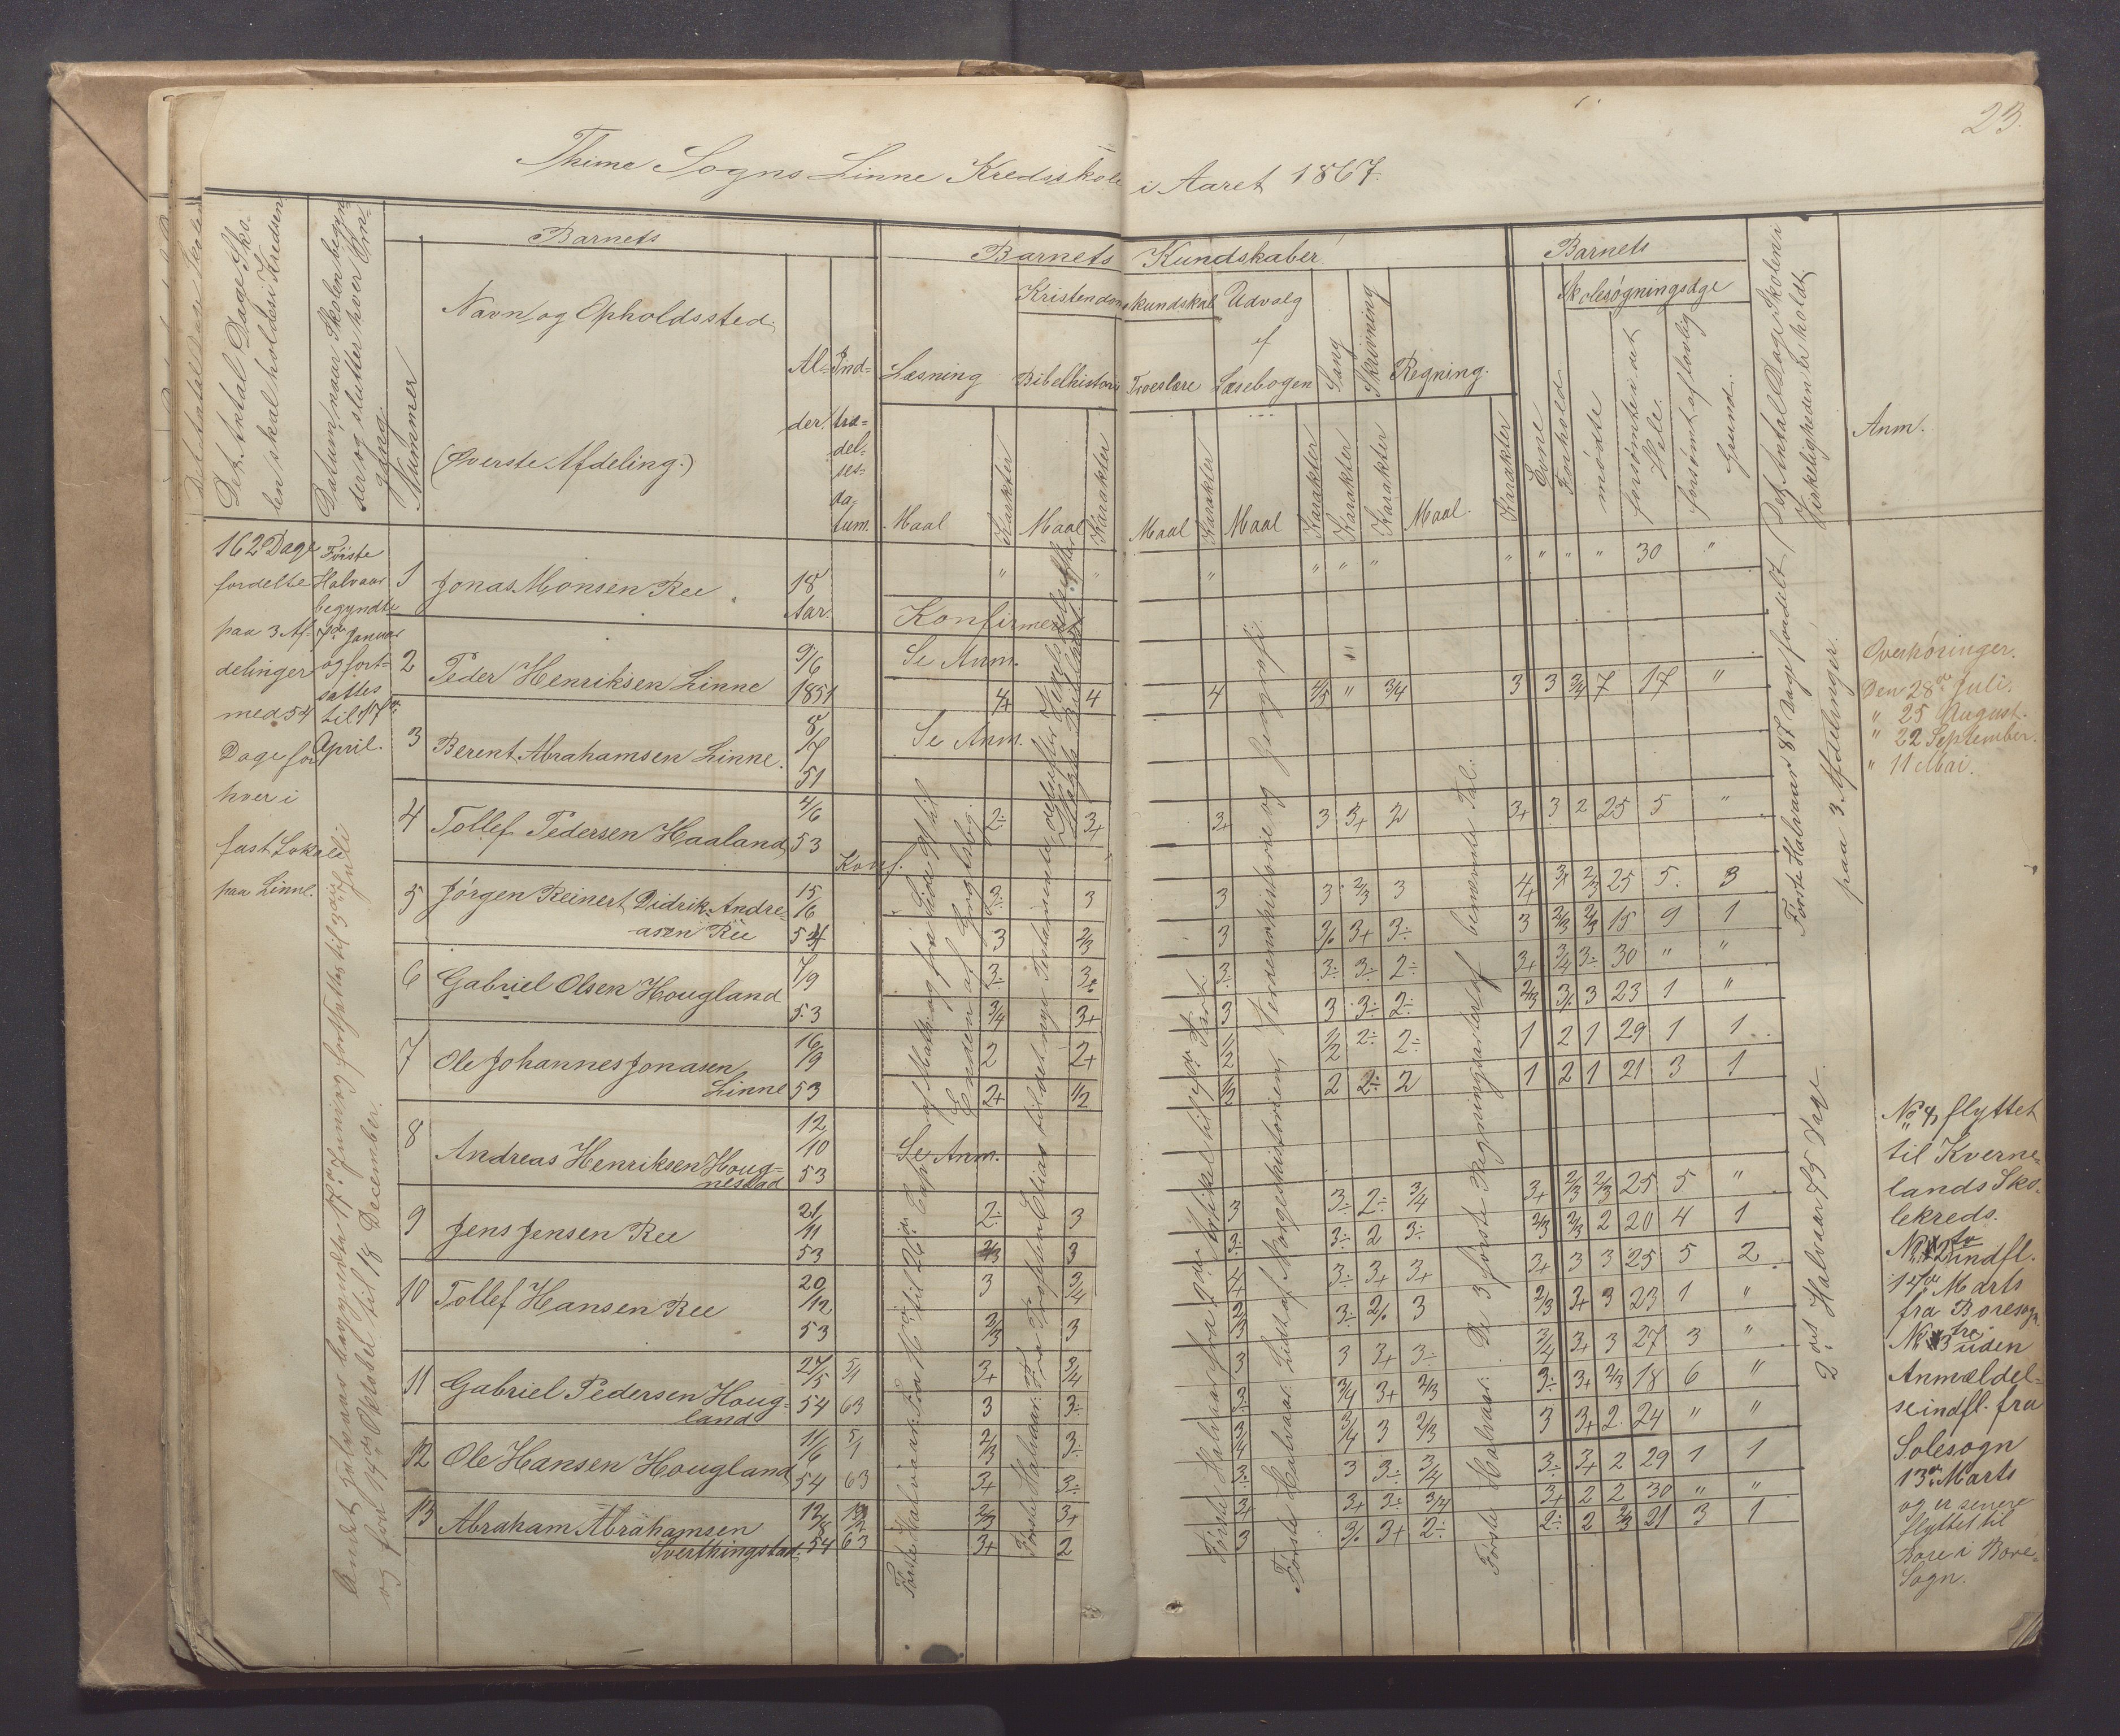 23.
Thime Sogns Linne Kredsskole i Aaret 1867.
Det Antal Dage Sko-
len skal holdes i Kredsen
Datum, naar Skolen begyn-
der og slutter hver Om-
gang.
Nummer
Barnets
Navn og Opholdssted.
(Øverste Afdeling.)
Al-
der.
Ind-
træ-
del-
ses-
da-
tum.
Barnets Kundskaber.
Læsning
Maal
Karakter
Kristendomskundskab
Bibelhistorie
Maal
Karakter
Troeslære
Maal
Karakter
Udvalg
af
Læsebogen
Maal
Karakter
Sang
Karakter
Skrivning
Karakter
Regning.
Maal.
Karakter
Barnets
Evne
Forhold.
Skolesøgningsdge
mødte
forsømte i det
Hele.
forsømt af lovlig
Grund.
Det Antal Dage Skolen i
Virkeligheden er holdt
Anm.
162 Dage
fordelte
paa 3 Af-
delinger
med 54
Dage for
hver i
fast Lokale
paa Linne.
Første
Halvaar
begyndte
7de Januar
og fort-
sattes
til 17de
April.
Andet Halvaar begyndte 17de Juni og fortsattes til 3die Juli
og fra 14de Oktober til 18 December.
1 Jonas Monsen Ree 18 Aar. " " " " " " " " " " 30 "
Konfirmeret
2 Peder Henriksen Linne 9/6 1851
Se Anm. "
4+ 4 4 4/5 " 3/4 3 3 3/4 7 17 "
3 Berent Abrahamsen Linne. 8/7 51
Se Anm.
4 Tollef Pedersen Haaland 4/6 53 2÷ 3+ 3+ 3 3+ 2 3+ 3 2 25 5 "
Konf.
5 Jørgen Reinert Didrik Andre-
asen Ree
15/16 54 3÷ 3 3 3 2/3 3 4+ 3+ 2/3 25 5. 3
3 2/3 3 3/. 3+ 3÷ 3 2/3 2/3 15 9 1
6 Gabriel Olsen Hougland 7/9 53 3÷ 3÷ 3÷ 3÷ 3÷ 2÷ 3+ 3/4 3÷ 30 " "
3/4 3+ 3 3 3÷ 2÷ 2/3 3/. 3 23 1 "
7 Ole Johannes Jonasen
Linne
16/9 53 2 2+ 1/2 1/2 2÷ 2÷ 1 2 1 29 1 1
2+ 1/2 1/2 2 2÷ 2 1 2 1 21 3 1
8 Andreas Henriksen Houg-
nestad
12/10 53
Se Anm.
9 Jens Jensen Ree 21/11 53 2÷ 3 3 3÷ 2÷ 3/4 3+ 2/3 2/3 25 5 "
2/3 3 3÷ 3÷ 2 3÷ 2/3 2/3 2 20 4 1
10 Tollef Hansen Ree 20/12 53 3 3/4 4 3÷ 3+ 3+ 3+ 3 3 25 5 2
2/3 3 2/3 3÷ 2/. 3 2/3 3+ 3 23 1 "
11 Gabriel Pedersen Houg-
land
27/5 54 5/1 63 3+ 3/4 3 3 3+ 3÷ 3/4 3+ 3 27 3 "
3 3÷ 3÷ 3/4 3+ 2/3 3÷ 3+ 2/3 18 6 "
12 Ole Hansen Hougland 11/6 54 5/1 63 2/3 3÷ 3/4 3/4 3 2/3 3 3+ 2. 24 " "
3+ 3÷ 3÷ 3 3÷ 3/4 3÷ 3+ 2 29 1 1
13 Abraham Abrahamsen
Svertkingstad.
12/8 54 63 2/3 3+ 3+ 3+ 3÷ 3/4 3+ 2 2 30 " "
3+ 2 3 3/. 3+ 2÷ 2÷ 2 2/3 21 3 1
Første Halvaar 87 Dage fordelt
paa 3 Afdelinger.
2det Halvaar 75 Dage.
Overhøringer.
Den 28de Juli.
" 25 August.
" 22 September.
" 11 Mai.
No 8 flyttet
til Kverne-
lands Sko-
lekreds.
No 2 to indfl.
14de Marts
fra Boresogn
No 3 tre uden
Anmældel-
se indfl. fra
Solesogn
13de Marts
og er senere
flyttet til
Bore i Bore-
Sogn.